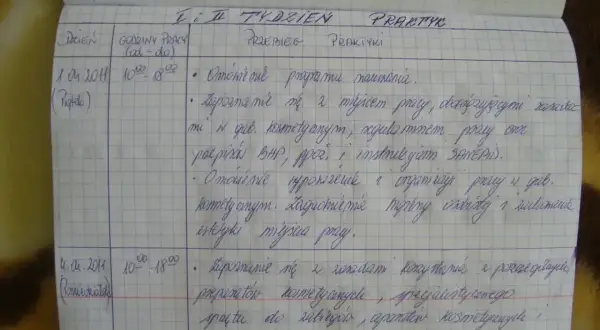 I i II TYDZIEŃ PRAKTYK
DZIEŃ GODZINY PRACY (od - do) PRZEBIEG PRAKTYKI
1.04.2011 10⁰⁰-18⁰⁰ • Omówienie programu nauczania.
(Piątek) • Zapoznanie się z miejscem pracy, obowiązującymi zasada-
mi w gab. kosmetycznym, regulaminem pracy oraz
przepisów BHP, ppoż i instrukcjami SANEPiD.
• Omówienie wyposażenia i organizacji pracy w gab.
kosmetycznym. higieny osobistej i
estetyki miejsca pracy.
4.04.2011 10⁰⁰-18⁰⁰ • Zapoznanie się z zasadami korzystania z poszczególnych
(Poniedziałek) preparatów kosmetycznych, specjalistycznego
sprzętu do zabiegów, aparatów kosmetycznych i